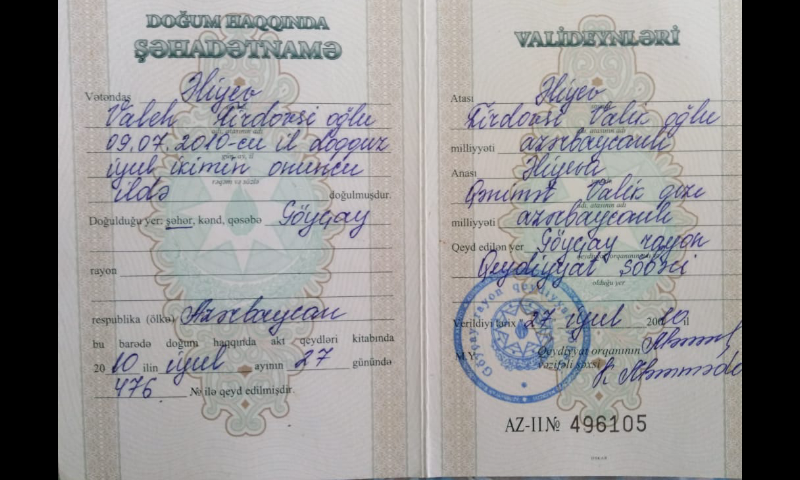 DOĞUM HAQQINDA
ŞƏHADƏTNAMƏ
Vətəndaş Əliyev
Valeh Firdovsi oğlu
adı, atasının adı
09.07.2010-cu il doqquz
gün, ay, il
iyul ikimin onuncu
rəqəm və sözlə
ildə doğulmuşdur.
Doğulduğu yer: şəhər, kənd, qəsəbə Göyçay
rayon
respublika (ölkə) Azərbaycan
bu barədə doğum haqqında akt qeydləri kitabında
2010 ilin iyul ayının 27 günündə
476 № ilə qeyd edilmişdir.
VALİDEYNLƏRİ
Atası Əliyev
soyadı
Firdovsi Valik oğlu
adı, atasının adı
milliyyəti azərbaycanlı
Anası Əliyeva
soyadı
Qənimət Valik qızı
adı, atasının adı
milliyyəti azərbaycanlı
Qeyd edilən yer Göyçay rayon
qeydiyyat orqanının
Qeydiyyat şöbəsi
olduğu yer
Verildiyi tarix 27 iyul 2010 il
M.Y. Qeydiyyat orqanının
vəzifəli şəxsi
AZ-II № 496105